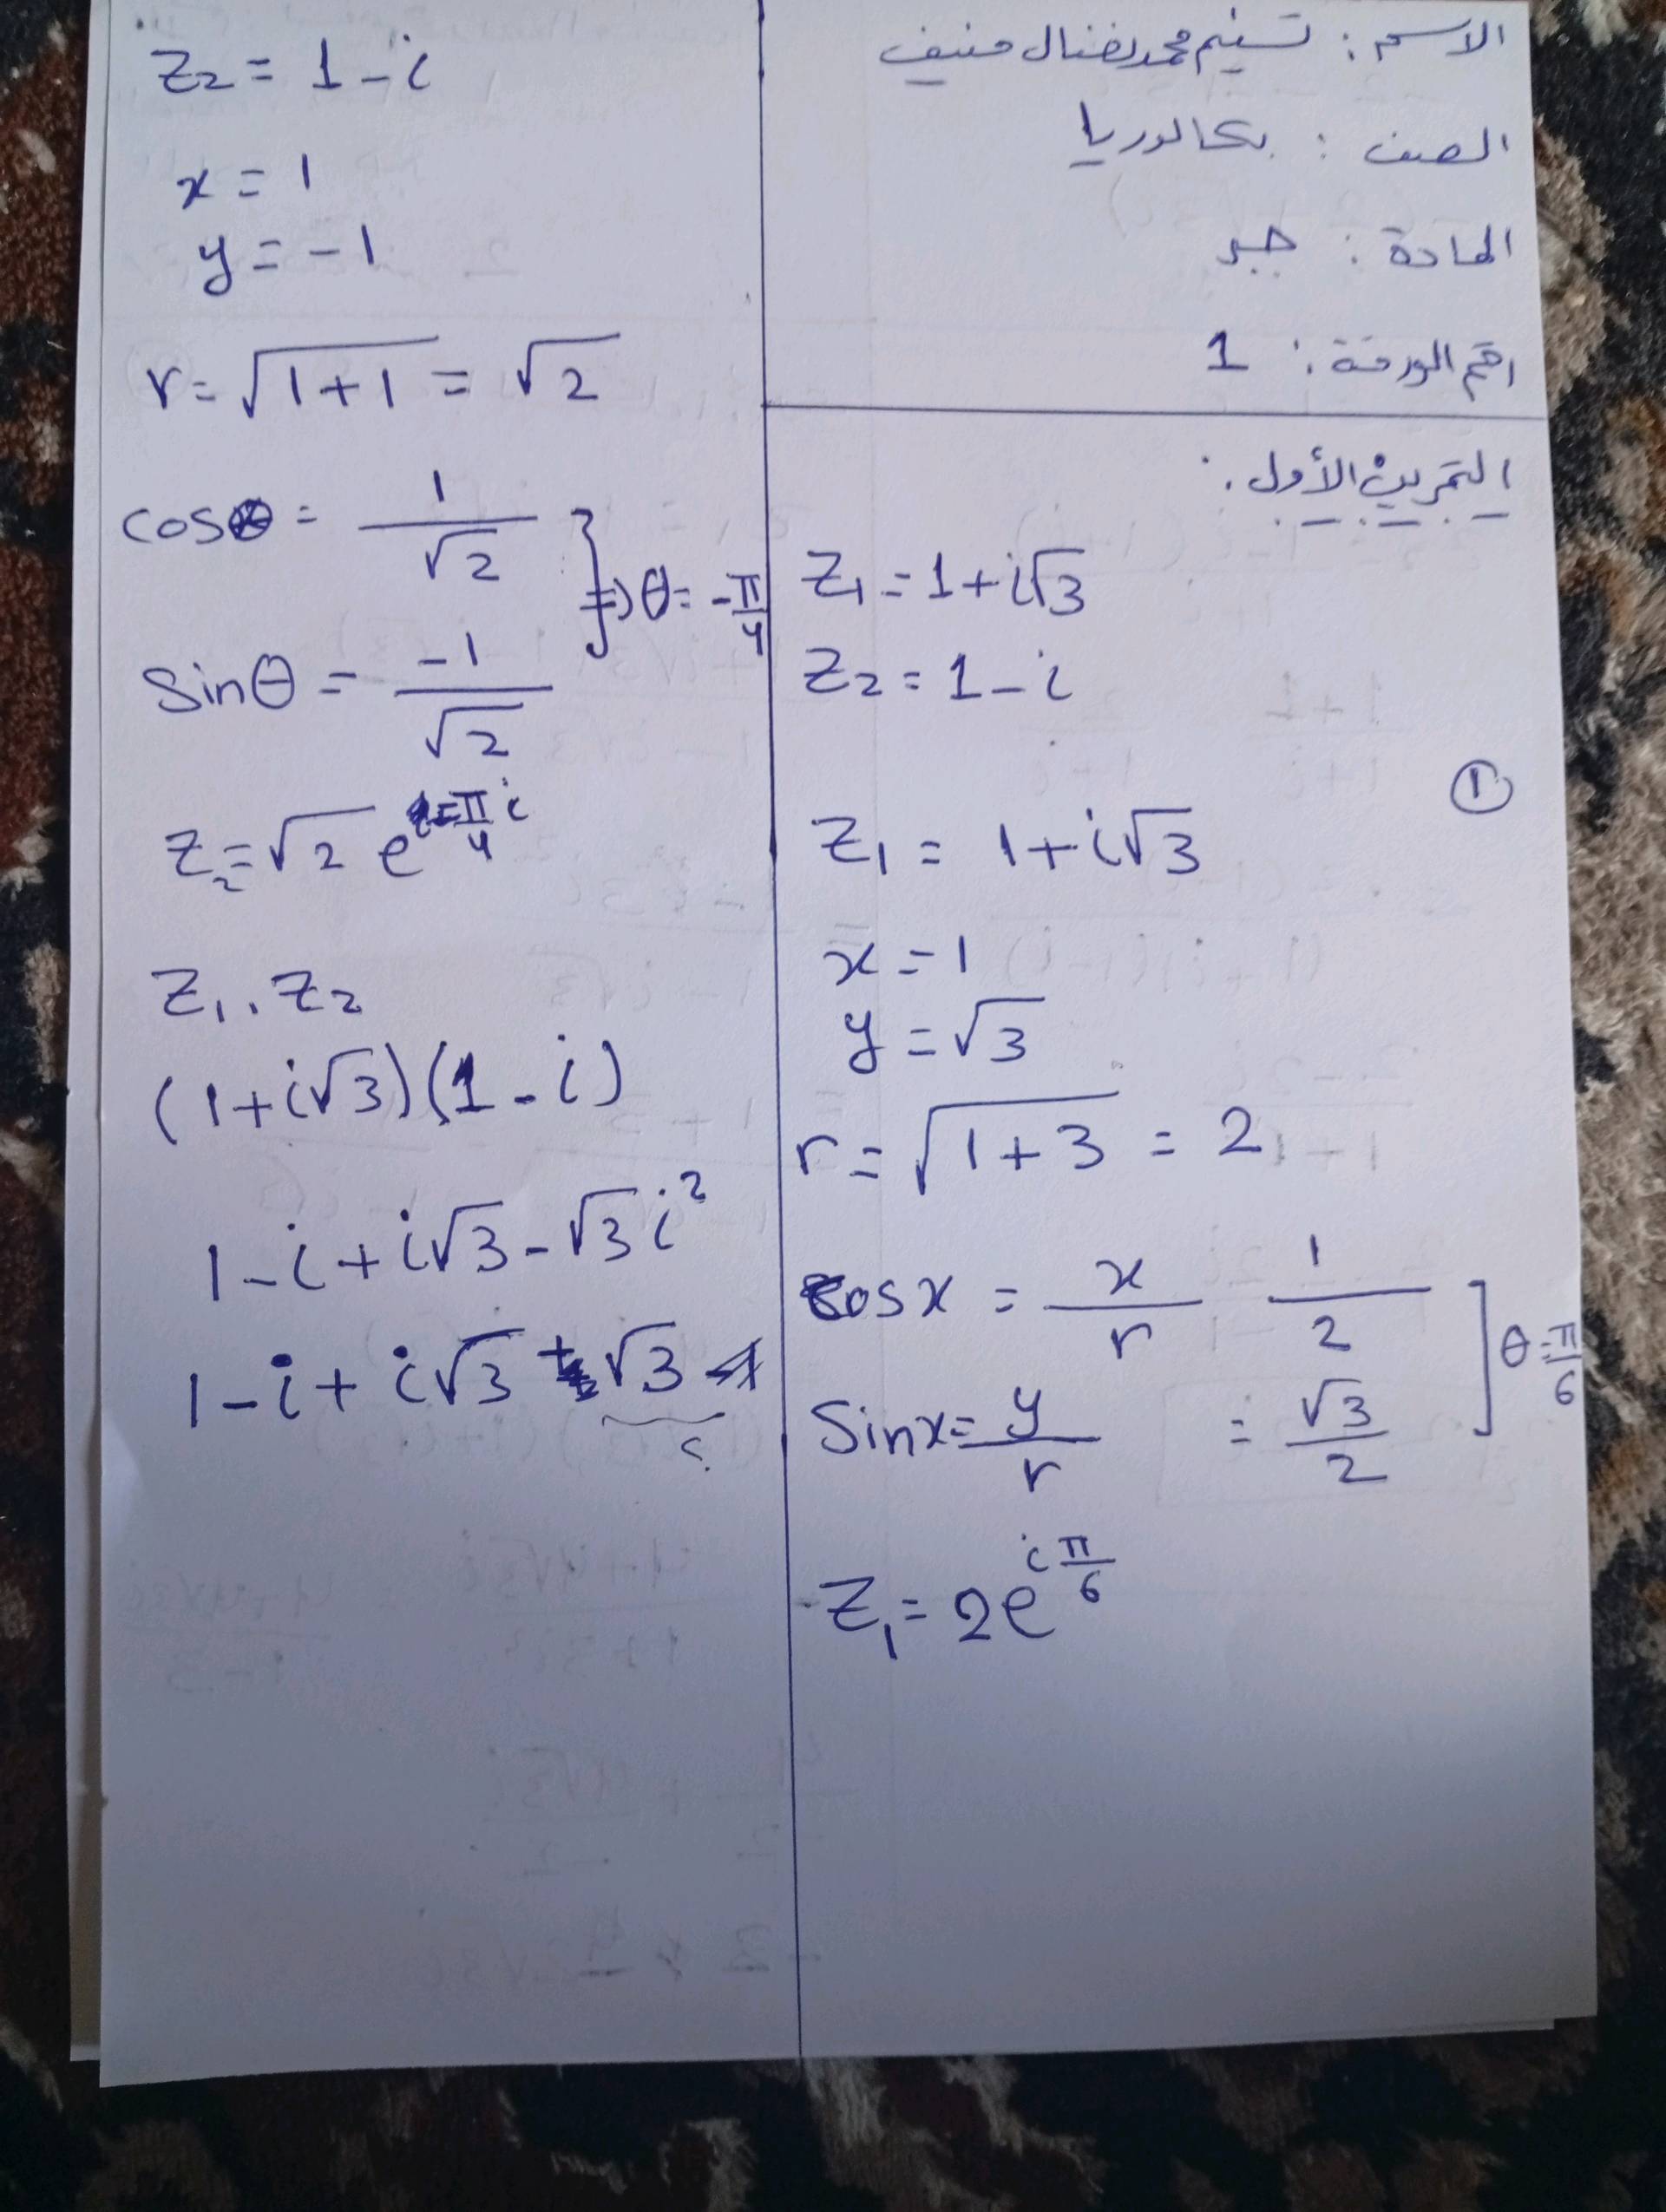 الاسم : تسنيم محمد نضال منيف
الصف : بكالوريا
المادة : جبر
رقم الورقة : 1
التمرين الأول :
Z₁ = 1 + i√3
Z₂ = 1 - i
①
Z₁ = 1 + i√3
x = 1
y = √3
r = √(1+3) = 2
cos x = x/r 1/2
Sin x = y/r = √3/2 ] θ = π/6
Z₁ = 2e^(i π/6)
Z₂ = 1 - i
x = 1
y = -1
r = √(1+1) = √2
cos θ = 1/√2
sin θ = -1/√2 } ⇒ θ = -π/4
Z₂ = √2 e^(-π/4 i)
Z₁ . Z₂
(1 + i√3)(1 - i)
1 - i + i√3 - √3 i²
1 - i + i√3 + √3